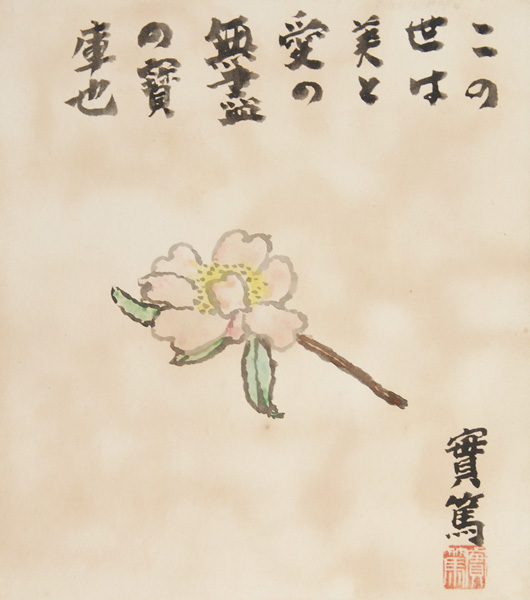 この
世は
美と
愛の
無盡
の寶
庫也
實篤
實篤